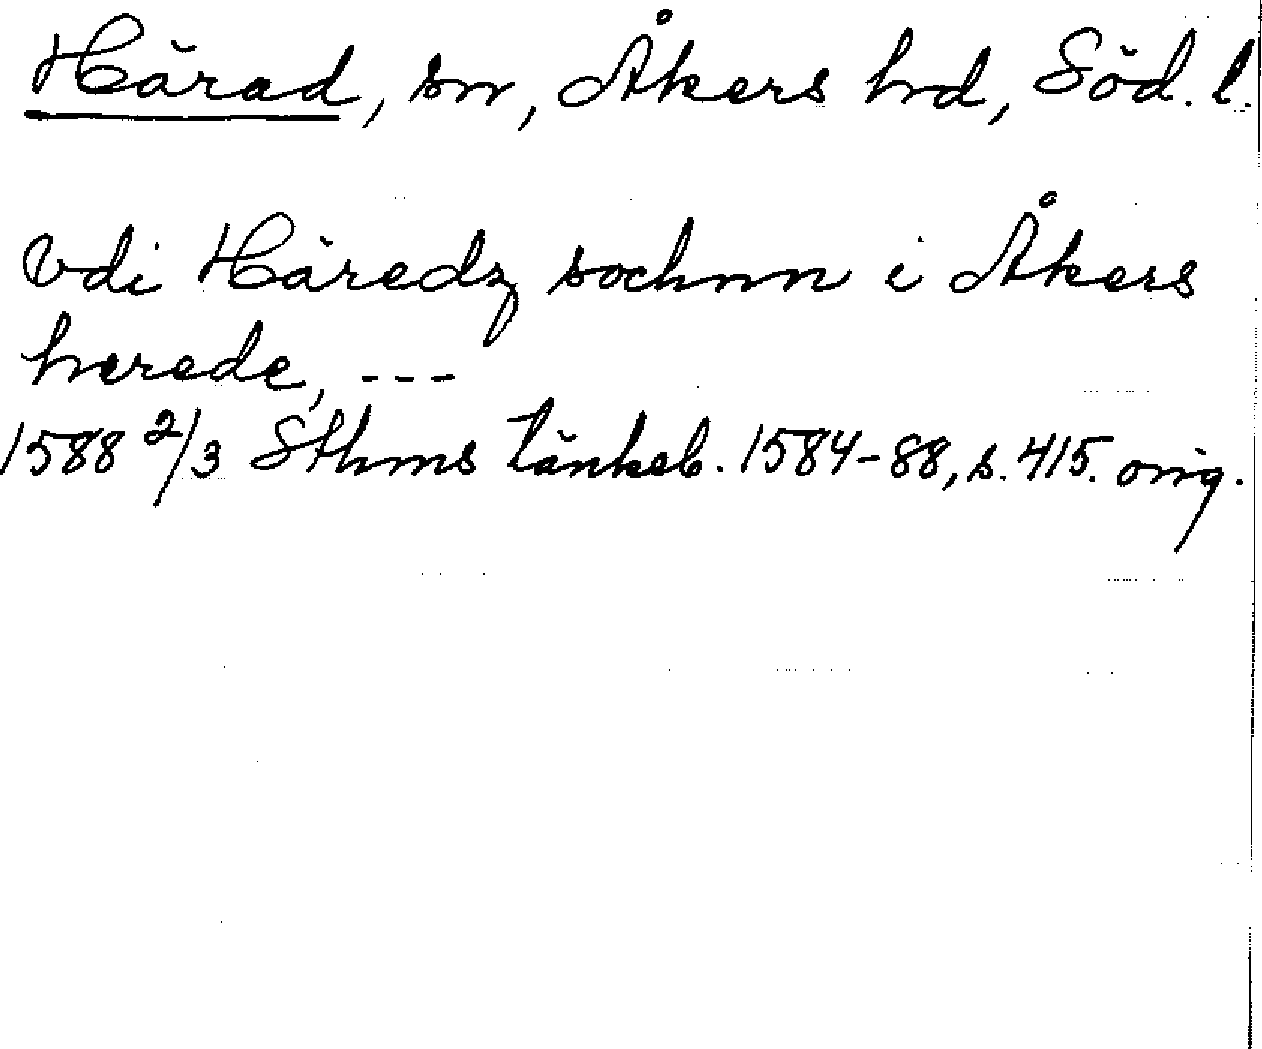 Härad, sn, Åkers hd, Söd. l.
Vdi Häredz sochnn i Åkers
herede, ---
1588 2/3 Sthms tänkeb. 1584-88, s. 415. orig.